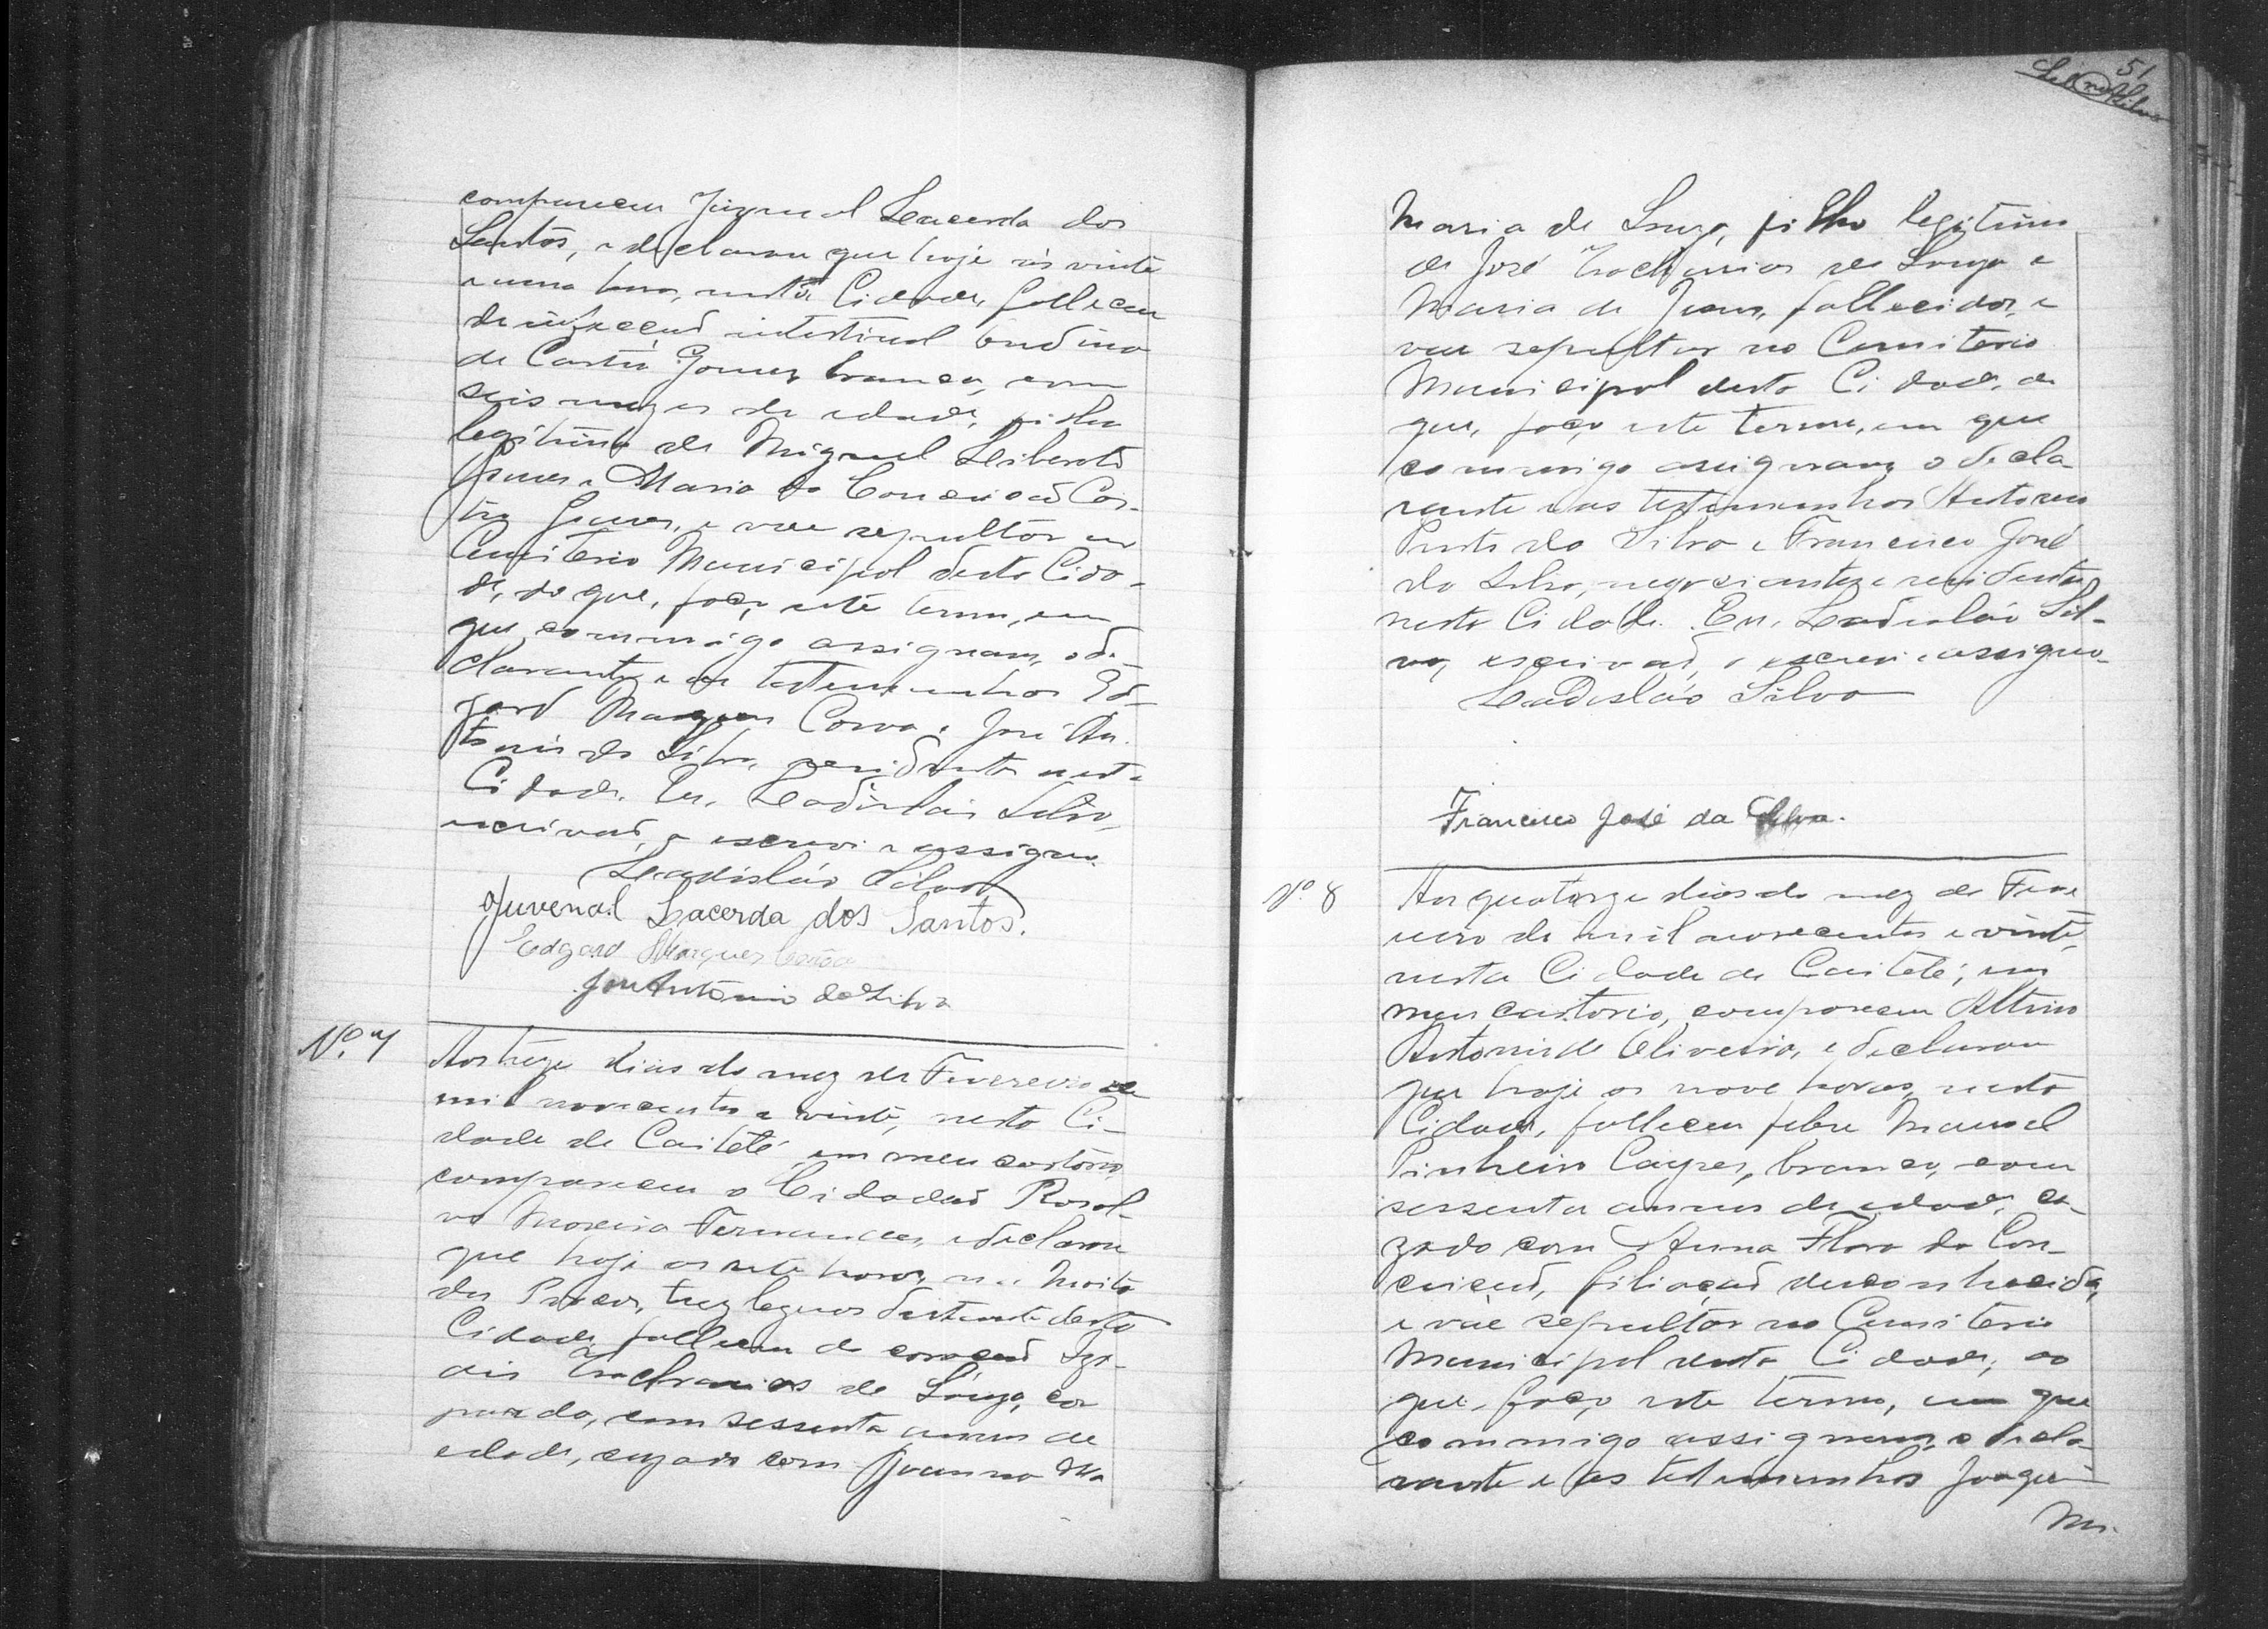 compareceu Juvenal Lacerda dos
Santos, e declarou que hoje ás vinte
e uma hora, nesta Cidade, falleceu
de infecção intestinal
de Castro Gomes, branca, com
seis mezes de edade, filha
legitima de Miguel Liberato
Gomes e Maria da Conceição Cas-
tro Gomes, e vae sepultar no
Cemiterio Municipal desta Cida-
de, do que, faço este termo, em
que commigo assignam, o de-
clarante e as testemunhas Ed-
gard Marques e José An-
tonio da Silva, residentes nesta
Cidade. Eu, Ladisláo Silva,
escrivão, o escrevi e assigno.
Ladisláo Silva
Juvenal Lacerda dos Santos.
Edgard Marques
José Antonio da Silva
Nº. 7
Aos treze dias do mez de Fevereiro de
mil novecentos e vinte, nesta Ci-
dade de Caiteté, em meu cartorio,
compareceu o Cidadão Rosal-
vo Moreira Fernandes, e declarou
que hoje as sete horas, na Moita
dos Porcos, trez leguas distante desta
Cidade, falleceu de coração Iza-
ias de Souza, côr
parda, com sessenta annos de
edade, cazado com Joanna Ma
51
Ladisláo Silva
Maria de Souza, filho legitimo
de José de Souza e
Maria de Jesus, fallecidos, e
vae sepultar no Cemiterio
Municipal desta Cidade, do
que, faço este termo, em que
commigo assignam, o decla-
rante e as testemunhas Antonio
da Silva e Francisco José
da Silva, negociantes e residentes
nesta Cidade. Eu, Ladisláo Sil-
va, escrivão, o escrevi e assigno.
Ladisláo Silva
Francisco José da Silva.
Nº. 8
Aos quatorze dias do mez de Feve
reiro de mil novecentos e vinte,
nesta Cidade de Caiteté, em
meu cartorio, compareceu Altino
Antonio de Oliveira, e declarou
que hoje as nove horas, nesta
Cidade, falleceu febre Manoel
Pinheiro branco, com
sessenta annos de edade, ca-
zado com Anna Flora da Con-
ceição, filiação desconhecida,
e vae sepultar no Cemiterio
Municipal desta Cidade, do
que, faço este termo, em que
commigo assignam, o decla-
rante e as testemunhas Joaqui
m.